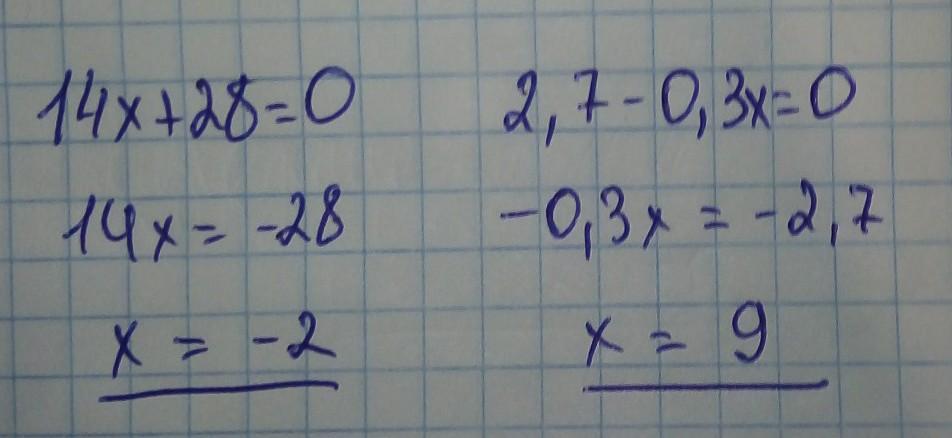 14x+28=0
14x = -28
x = -2
2,7-0,3x=0
-0,3x = -2,7
x = 9